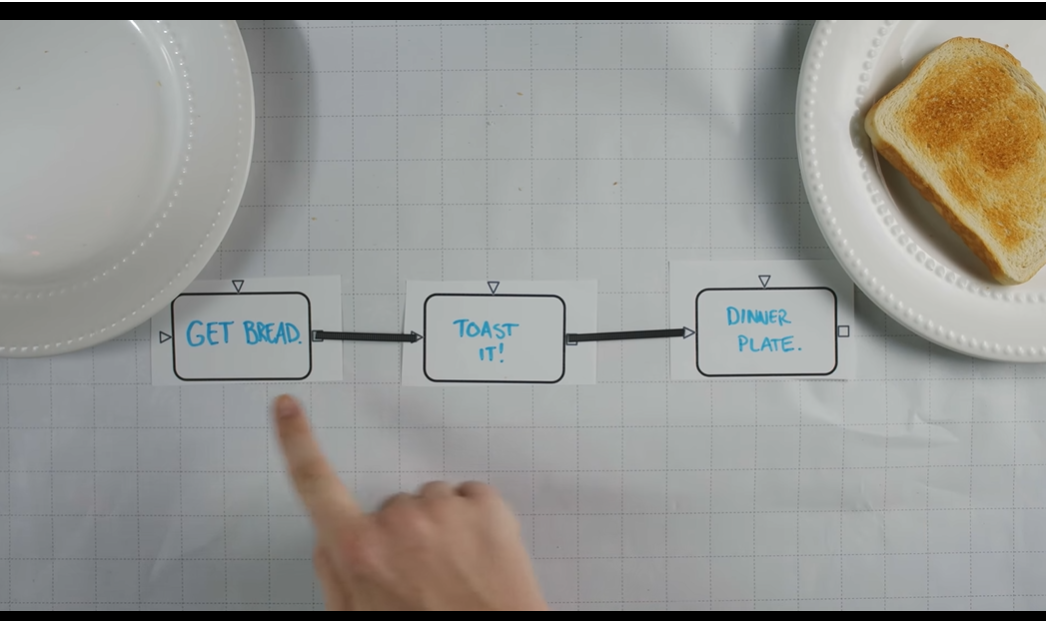 GET BREAD.
TOAST
IT!
DINNER
PLATE.